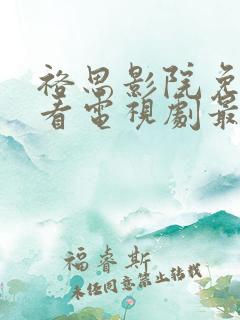 裕思影院免
看电视劇最
福睿斯
未经同意禁止转载